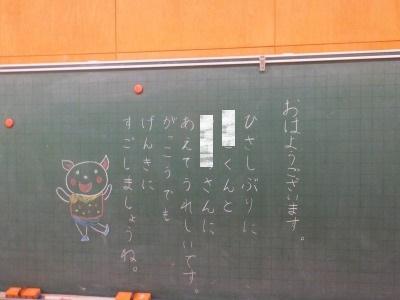 おはようございます。
ひさしぶりに
くんと
さんに
あえてうれしいです。
がっこうでも
げんきに
すごしましょうね。